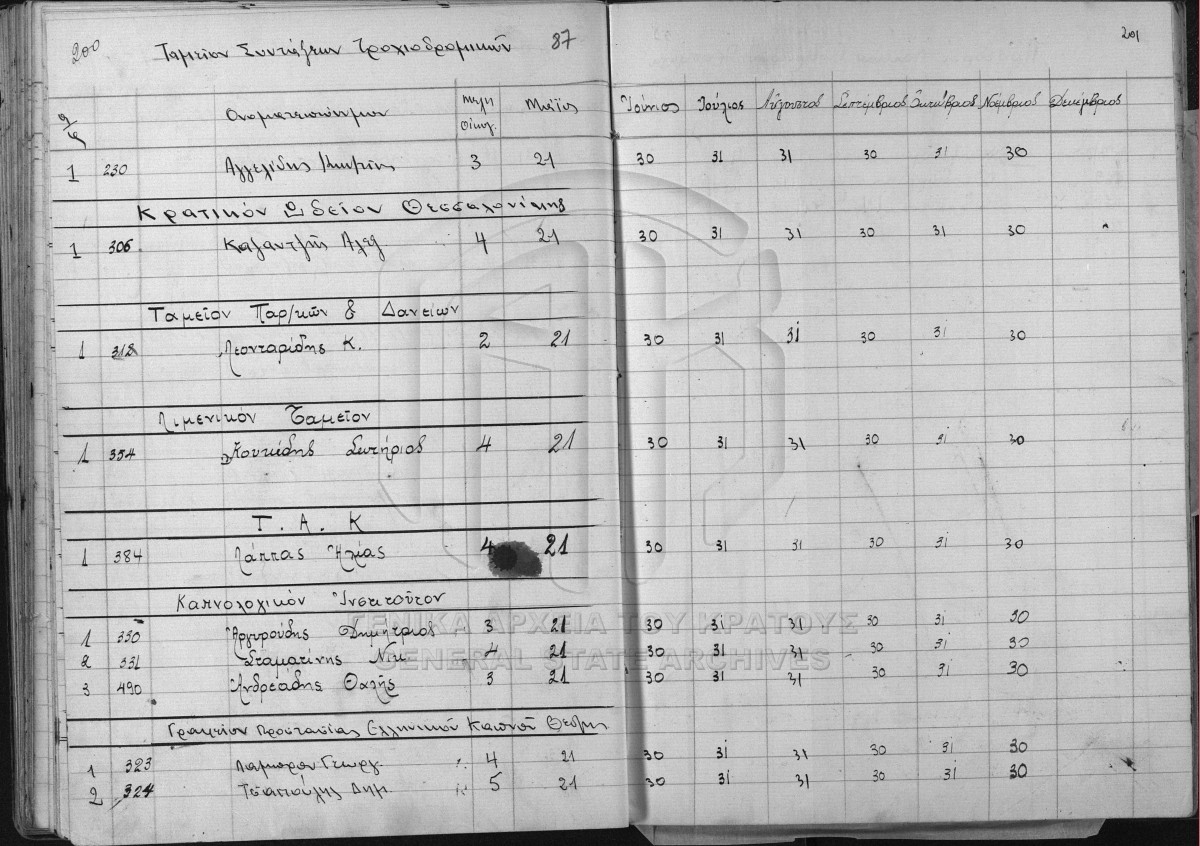 200 Ταμείον Συντάξεων Τροχιοδρομικών 87 201
α/α Ονοματεπώνυμον Μέλη Οικογ. Μάϊος Ἰούνιος Ἰούλιος Αὔγουστος Σεπτέμβριος Ὀκτώβριος Νοέμβριος Δεκέμβριος
1 230 Αγγελίδης 3 21 30 31 31 30 31 30
Κρατικόν Ωδείον Θεσσαλονίκης
1 306 Καζαντζής Αλεξ 4 21 30 31 31 30 31 30
Ταμεῖον Παρ/κῶν & Δανείων
1 318 Λεονταρίδης Κ. 2 21 30 31 31 30 31 30
Λιμενικόν Ταμεῖον
1 354 Σωτήριος 4 21 30 31 31 30 31 30
Τ. Α. Κ
1 384 Λάππας Ηλίας 4 21 30 31 31 30 31 30
Καπνολογικόν Ἰνστιτοῦτον
1 330 Ἀργυρούδης Δημήτριος 3 21 30 31 31 30 31 30
2 331 Σταματίνης Νικ. 4 21 30 31 31 30 31 30
3 490 Ἀνδρεάδης Θαλῆς 3 21 30 31 31 30 31 30
Γραφείον Προστασίας Ελληνικού Καπνού Θεσ/κης
1 323 Γεωργ. 4 21 30 31 31 30 31 30
2 324 Δημ. 5 21 30 31 31 30 31 30
ΓΕΝΙΚΑ ΑΡΧΕΙΑ ΤΟΥ ΚΡΑΤΟΥΣ
GENERAL STATE ARCHIVES